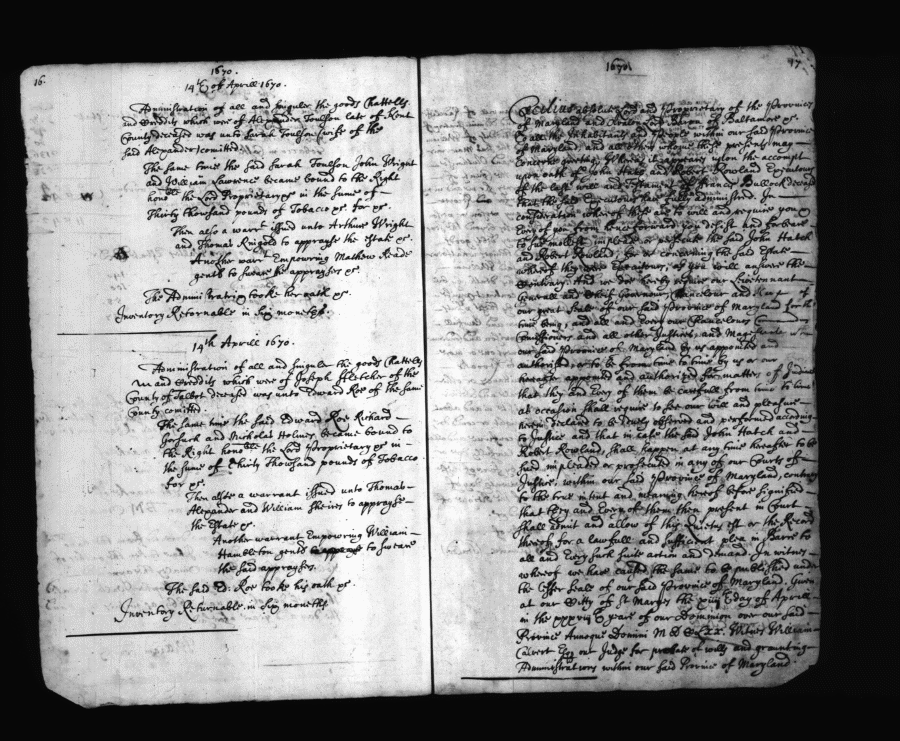 16.
1670.
14th of Aprill 1670.
Administration of all and singuler the goods Chattells
and Creditts which were of Alexander Toulson late of Kent
County deceased was unto Sarah Toulson wife of the
said Alexander comitted.
The same time the said Sarah Toulson John Wright
and William Lawrence became bound to the Right
honoble the Lord Proprietary &c in the sume of
Thirty thousand pounds of Tobacco &c. for &c.
Then also a warrt issued unto Arthur Wright
and Thomas Ringold to apprayse the Estate &c.
Another warrt Empowring Mathew Reade
gent to sweare the appraysers &c.
The Administratrix tooke her oath &c.
Inventory Returnable in Six moneths.
14th Aprill 1670.
Administration of all and singuler the goods Chattells
and Creditts which were of Joseph Fletcher of the
County of Talbot deceased was unto Edward Roe of the same
County comitted
The same time the said Edward Roe Richard
Gorsuch and Nicholas Holmes became bound to
the Right honoble the Lord Proprietary &c in
the sume of Thirty Thowsand pounds of Tobacco
for &c.
Then alsoe a warrant issued unto Thomas
Alexander and William Sheires to apprayse
the Estate &c.
Another warrant Empowring William
Hambleton gent to sweare
the said appraysers.
The said Ed: Roe tooke his oath &c.
Inventory Returnable in Six moneths
1670
17.
Cecilius absolute Lord and Proprietary of the Provinces
of Maryland and Avalon Lord Baron of Baltemore &c.
To all the Inhabitants and People within our said Province
of Maryland, and all others whome these presents may
concerne greeting. Whereas it appeares upon the accompt
upon oath of John Hatch and Robert Rowland Executours
of the last will and Testament of Francis Bullock deceased
that the said Executours have fully administred. In
consideration whereof these are to will and require you &
Every of you from hence forward you desist and forbeare
to sue molest implead or prosecute the said John Hatch
and Robert Rowland, for or concerning the said Estate
whereof they were Executours, as you will answere the
Contrary. And we doe hereby require our Lieutennant
Generall and Chiefe Governour, Chancelour and Keeper of
our great Seale of our said Province of Maryland for the
time being, and all and every our Chancelours
Comissioners and all other Justices, and Magistrates
our said Province of Maryland by us appointed and
authorized, or to be from time to time by us or our
heires appointed and authorized for matters of
that they and Every of them be carefull from time to time
as occasion shall require to see our will and pleasure
herein declared to be duely observed and performed according
to Justice and that in case the said John Hatch and
Robert Rowland, shall happen at any time hereafter to be
sued impleaded or prosecuted in any of our Courts of
Justice, within our said Province of Maryland, contrary
to the true intent and meaning hereof before signified
that they and Every of them then present in Court
shall admit and allow of this Quietus est or the Record
thereof for a lawfull and sufficient plea in Barre to
all and Every such suite action and demand. In witnes
whereof we have caused the same to be published under
the lesser Seale of our said Province of Maryland. Given
at our Citty of St Maryes the day of Aprill
in the yeare of our Dominion over our said
Province Annoque Domini M D C LXX. Witnes William
Calvert Esq our Judge for probate of wills and graunting
Administrations within our said Province of Maryland